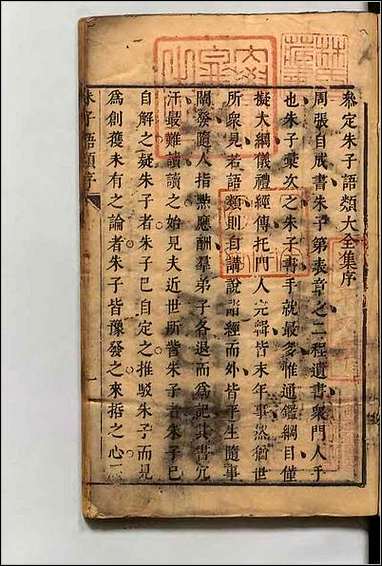 叅定朱子語類大全集序
周張自成書朱子第表章之二程遺書衆門人手
也朱子彙次之朱子書手就最多惟通鑑綱目僅
擬大綱儀禮經傳托門人完輯皆末年事然猶世
所衆見若語類則自講說諸經而外皆平生隨事
闡發隨人指㸃應酬羣弟子各退而為記其書冗
汗最難讀讀之始見夫近世所訾朱子者朱子已
自解之疑朱子者朱子已自定之推駁朱子而見
為創獲未有之論者朱子皆豫發之來括之心
朱子語類序
一